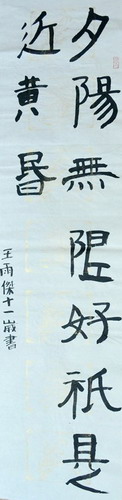 夕陽無限好祇是
近黃昏
王雨傑十一歲書